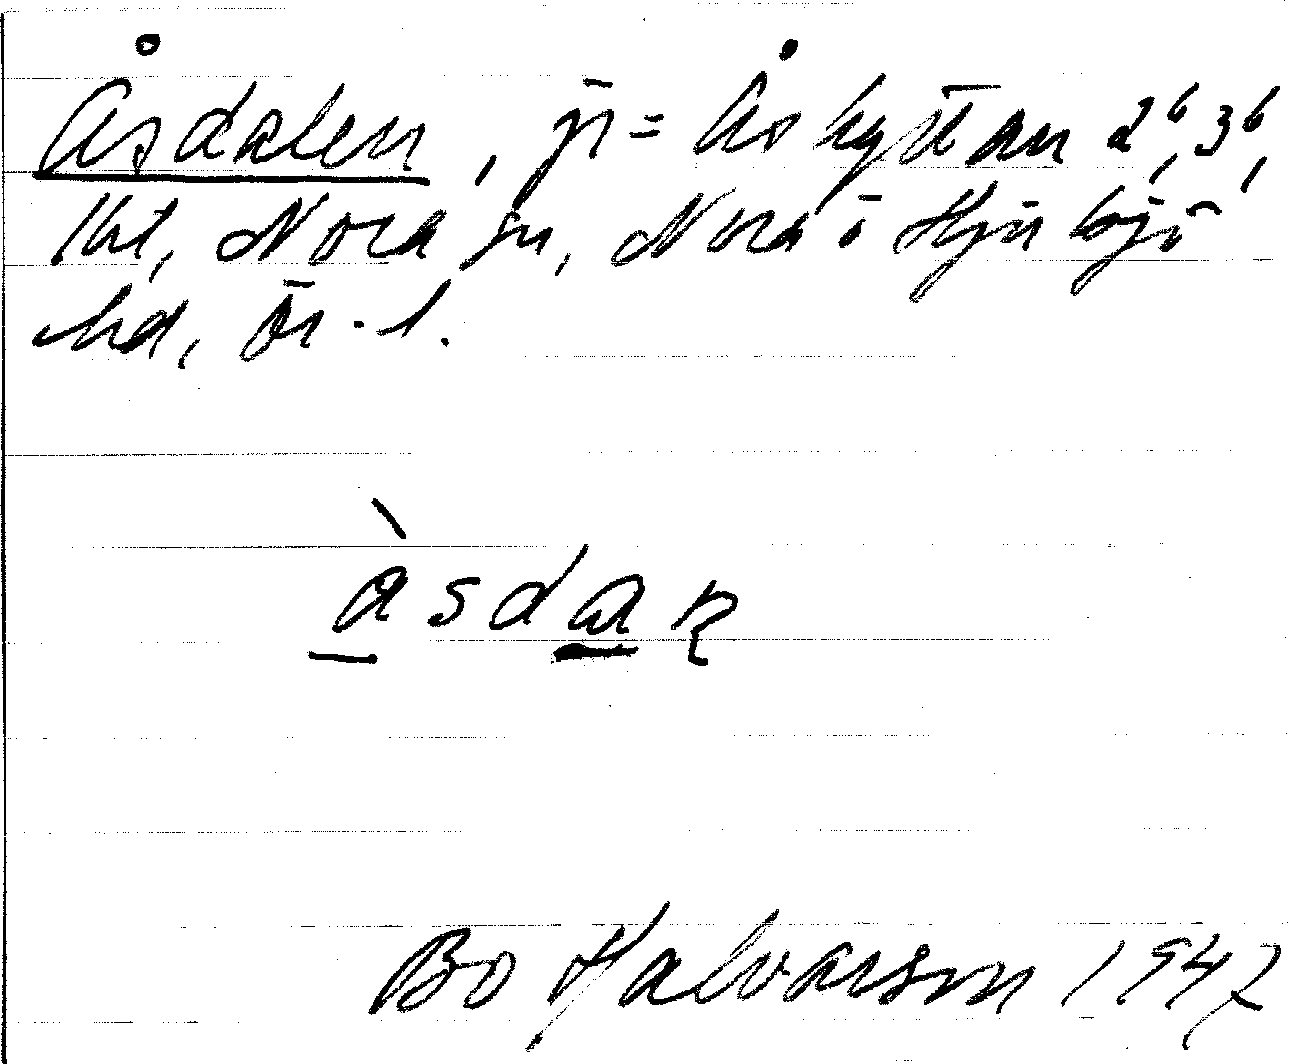 Åsdalen, jr = Åshyttan 2⁶, 3⁶,
1 kt, Nora sn, Nora o Hjulsjö
hd, Ör. l.
àsdaṉ
Bo Halvarson 1947